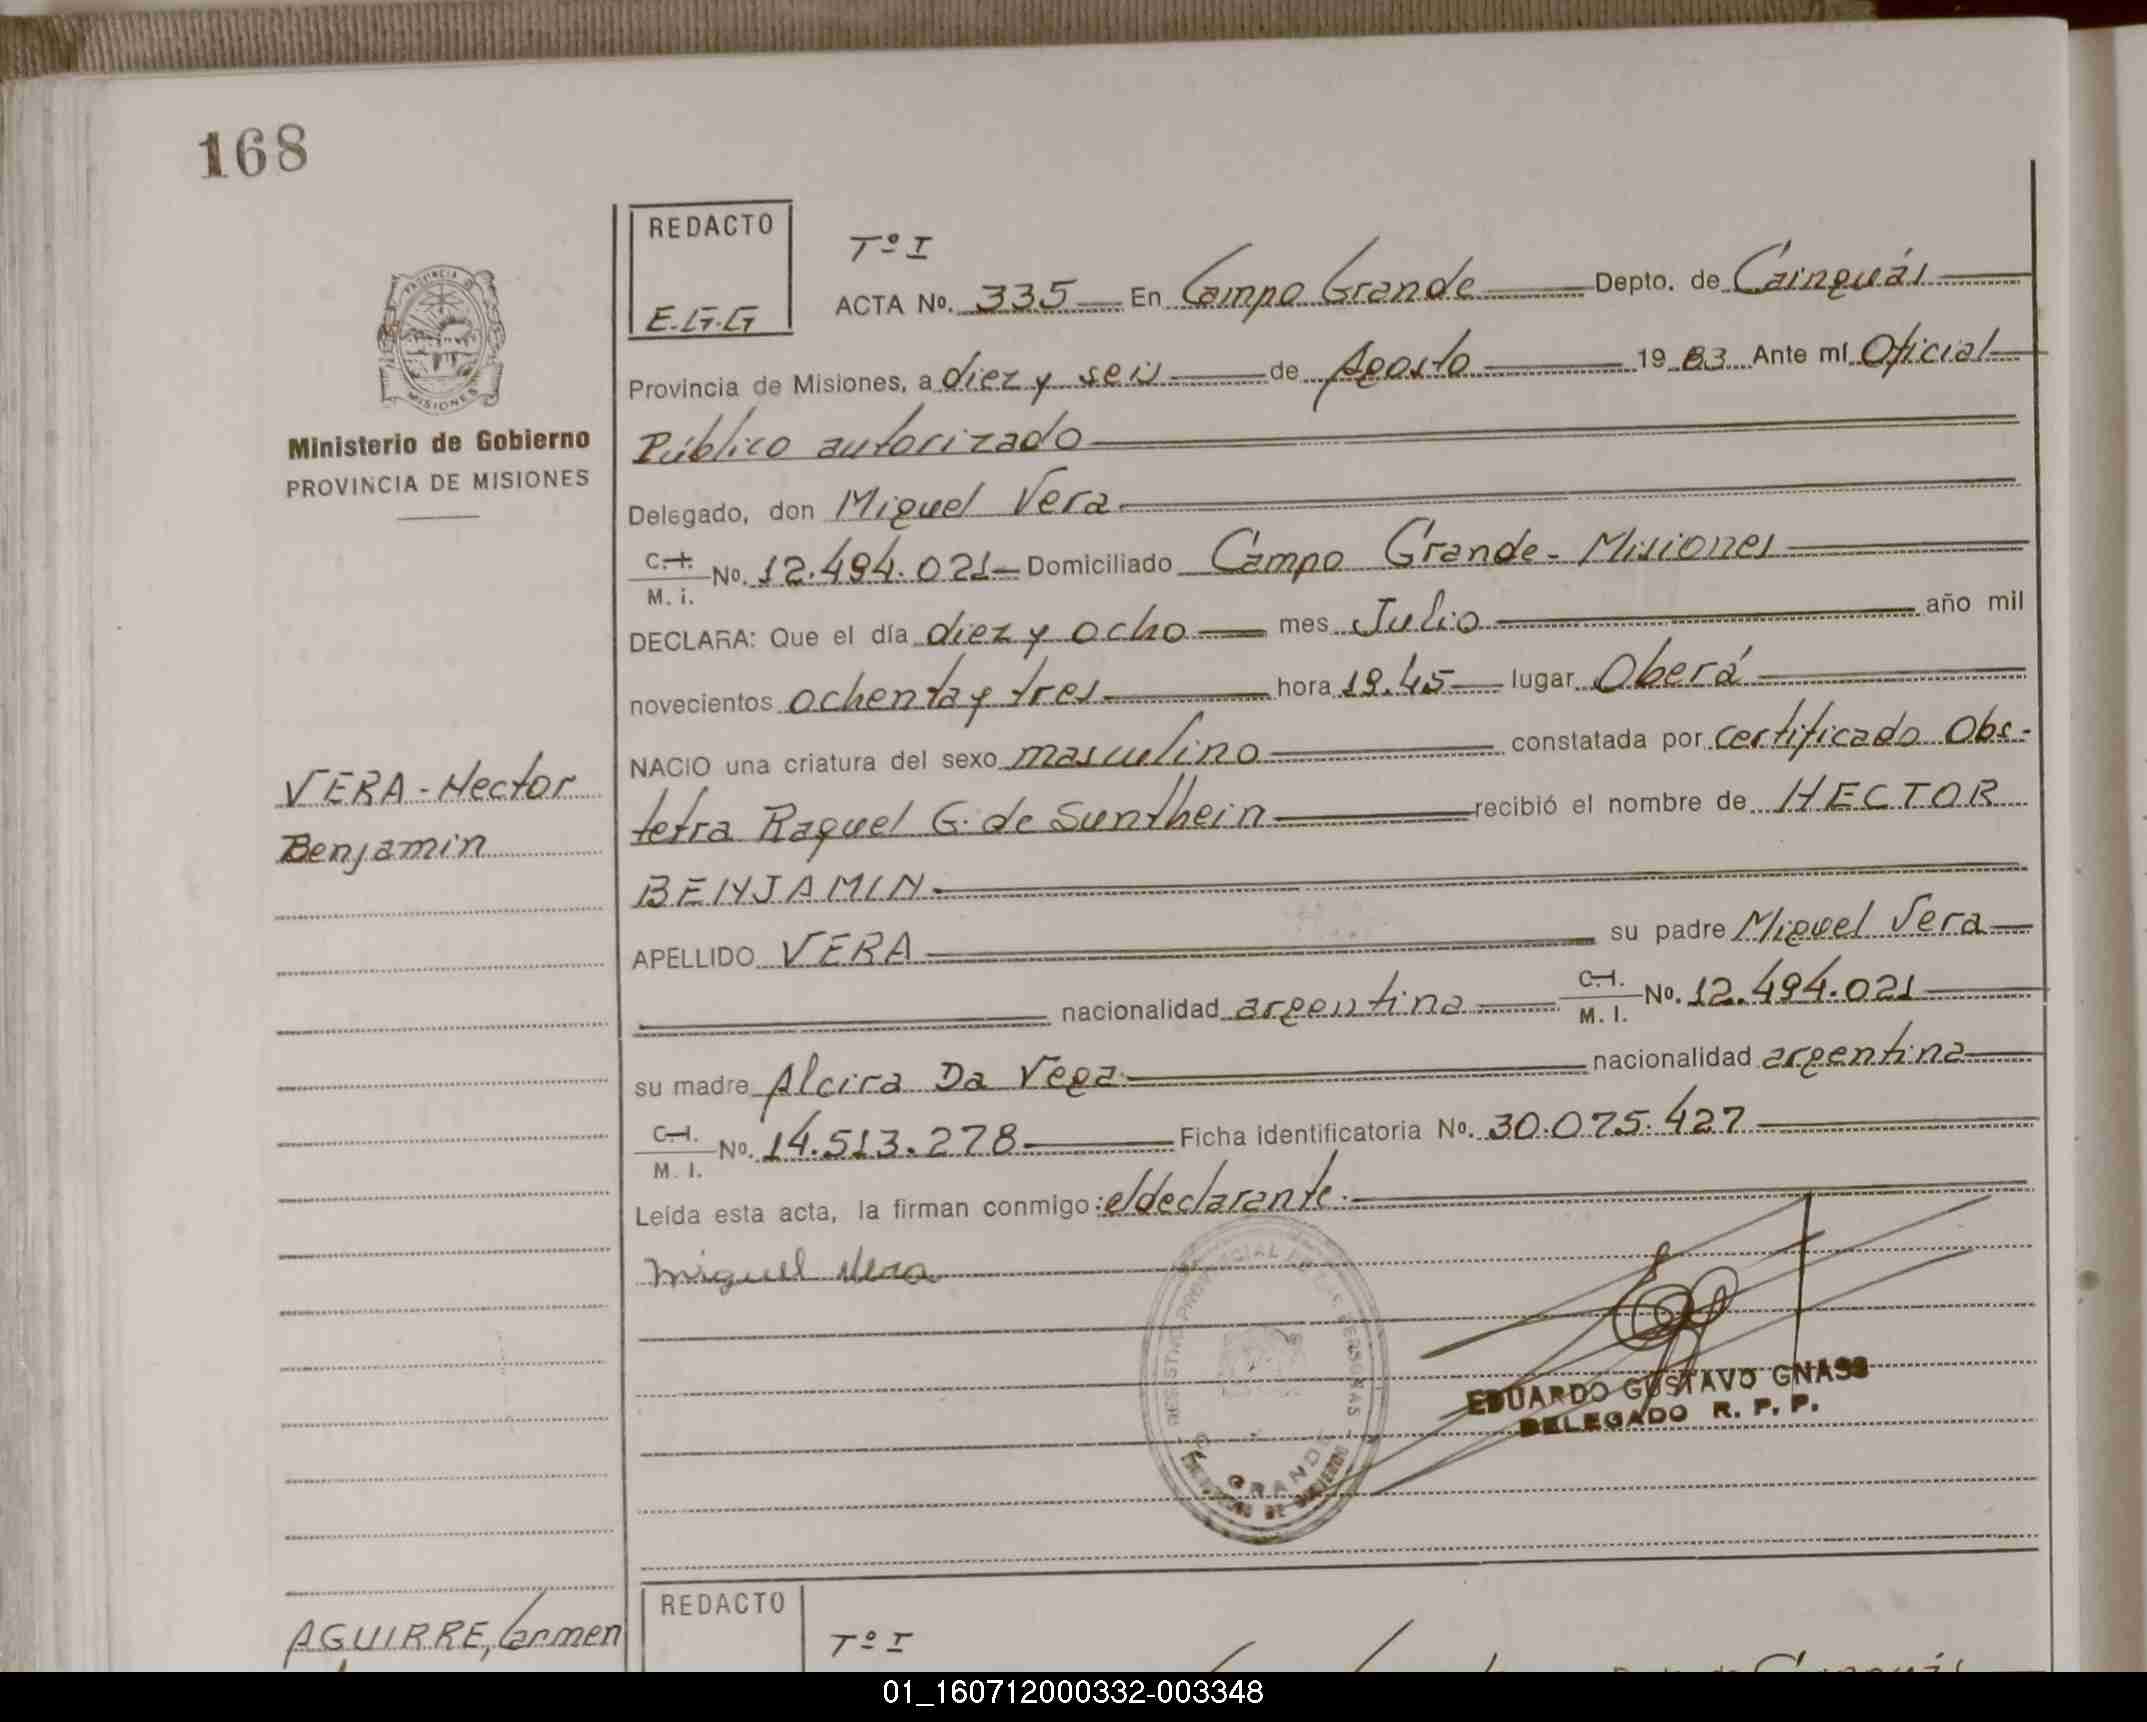 168
REDACTO
E.G.G
Tº I
ACTA Nº. 335 En Campo Grande Depto. de Cainguás
Provincia de Misiones, a diez y seis de Agosto 19 83 Ante mí Oficial
Público autorizado
Delegado, don Miguel Vera
C.I. M. i. Nº. 12.494.021 Domiciliado Campo Grande - Misiones
DECLARA: Que el día diez y ocho mes Julio año mil
novecientos ochenta y tres hora 19.45 lugar Oberá
NACIO una criatura del sexo masculino constatada por certificado Obs-
tetra Raquel G. de Sunthein recibió el nombre de HECTOR
BENJAMIN
APELLIDO VERA su padre Miguel Vera
nacionalidad argentina C.I. M. I. Nº. 12.494.021
su madre Alcira Da Vega nacionalidad argentina
C.I. M. I. Nº. 14.513.278 Ficha identificatoria Nº. 30.075.427
Leída esta acta, la firman conmigo: el declarante.
Miguel Vera
EDUARDO GUSTAVO GNASS
DELEGADO R. P. P.
REGISTRO PROVINCIAL DE LAS PERSONAS
GRANDE
PROVINCIA DE MISIONES
Ministerio de Gobierno
PROVINCIA DE MISIONES
VERA - Hector
Benjamin
AGUIRRE, Carmen
REDACTO
Tº I
01_160712000332-003348